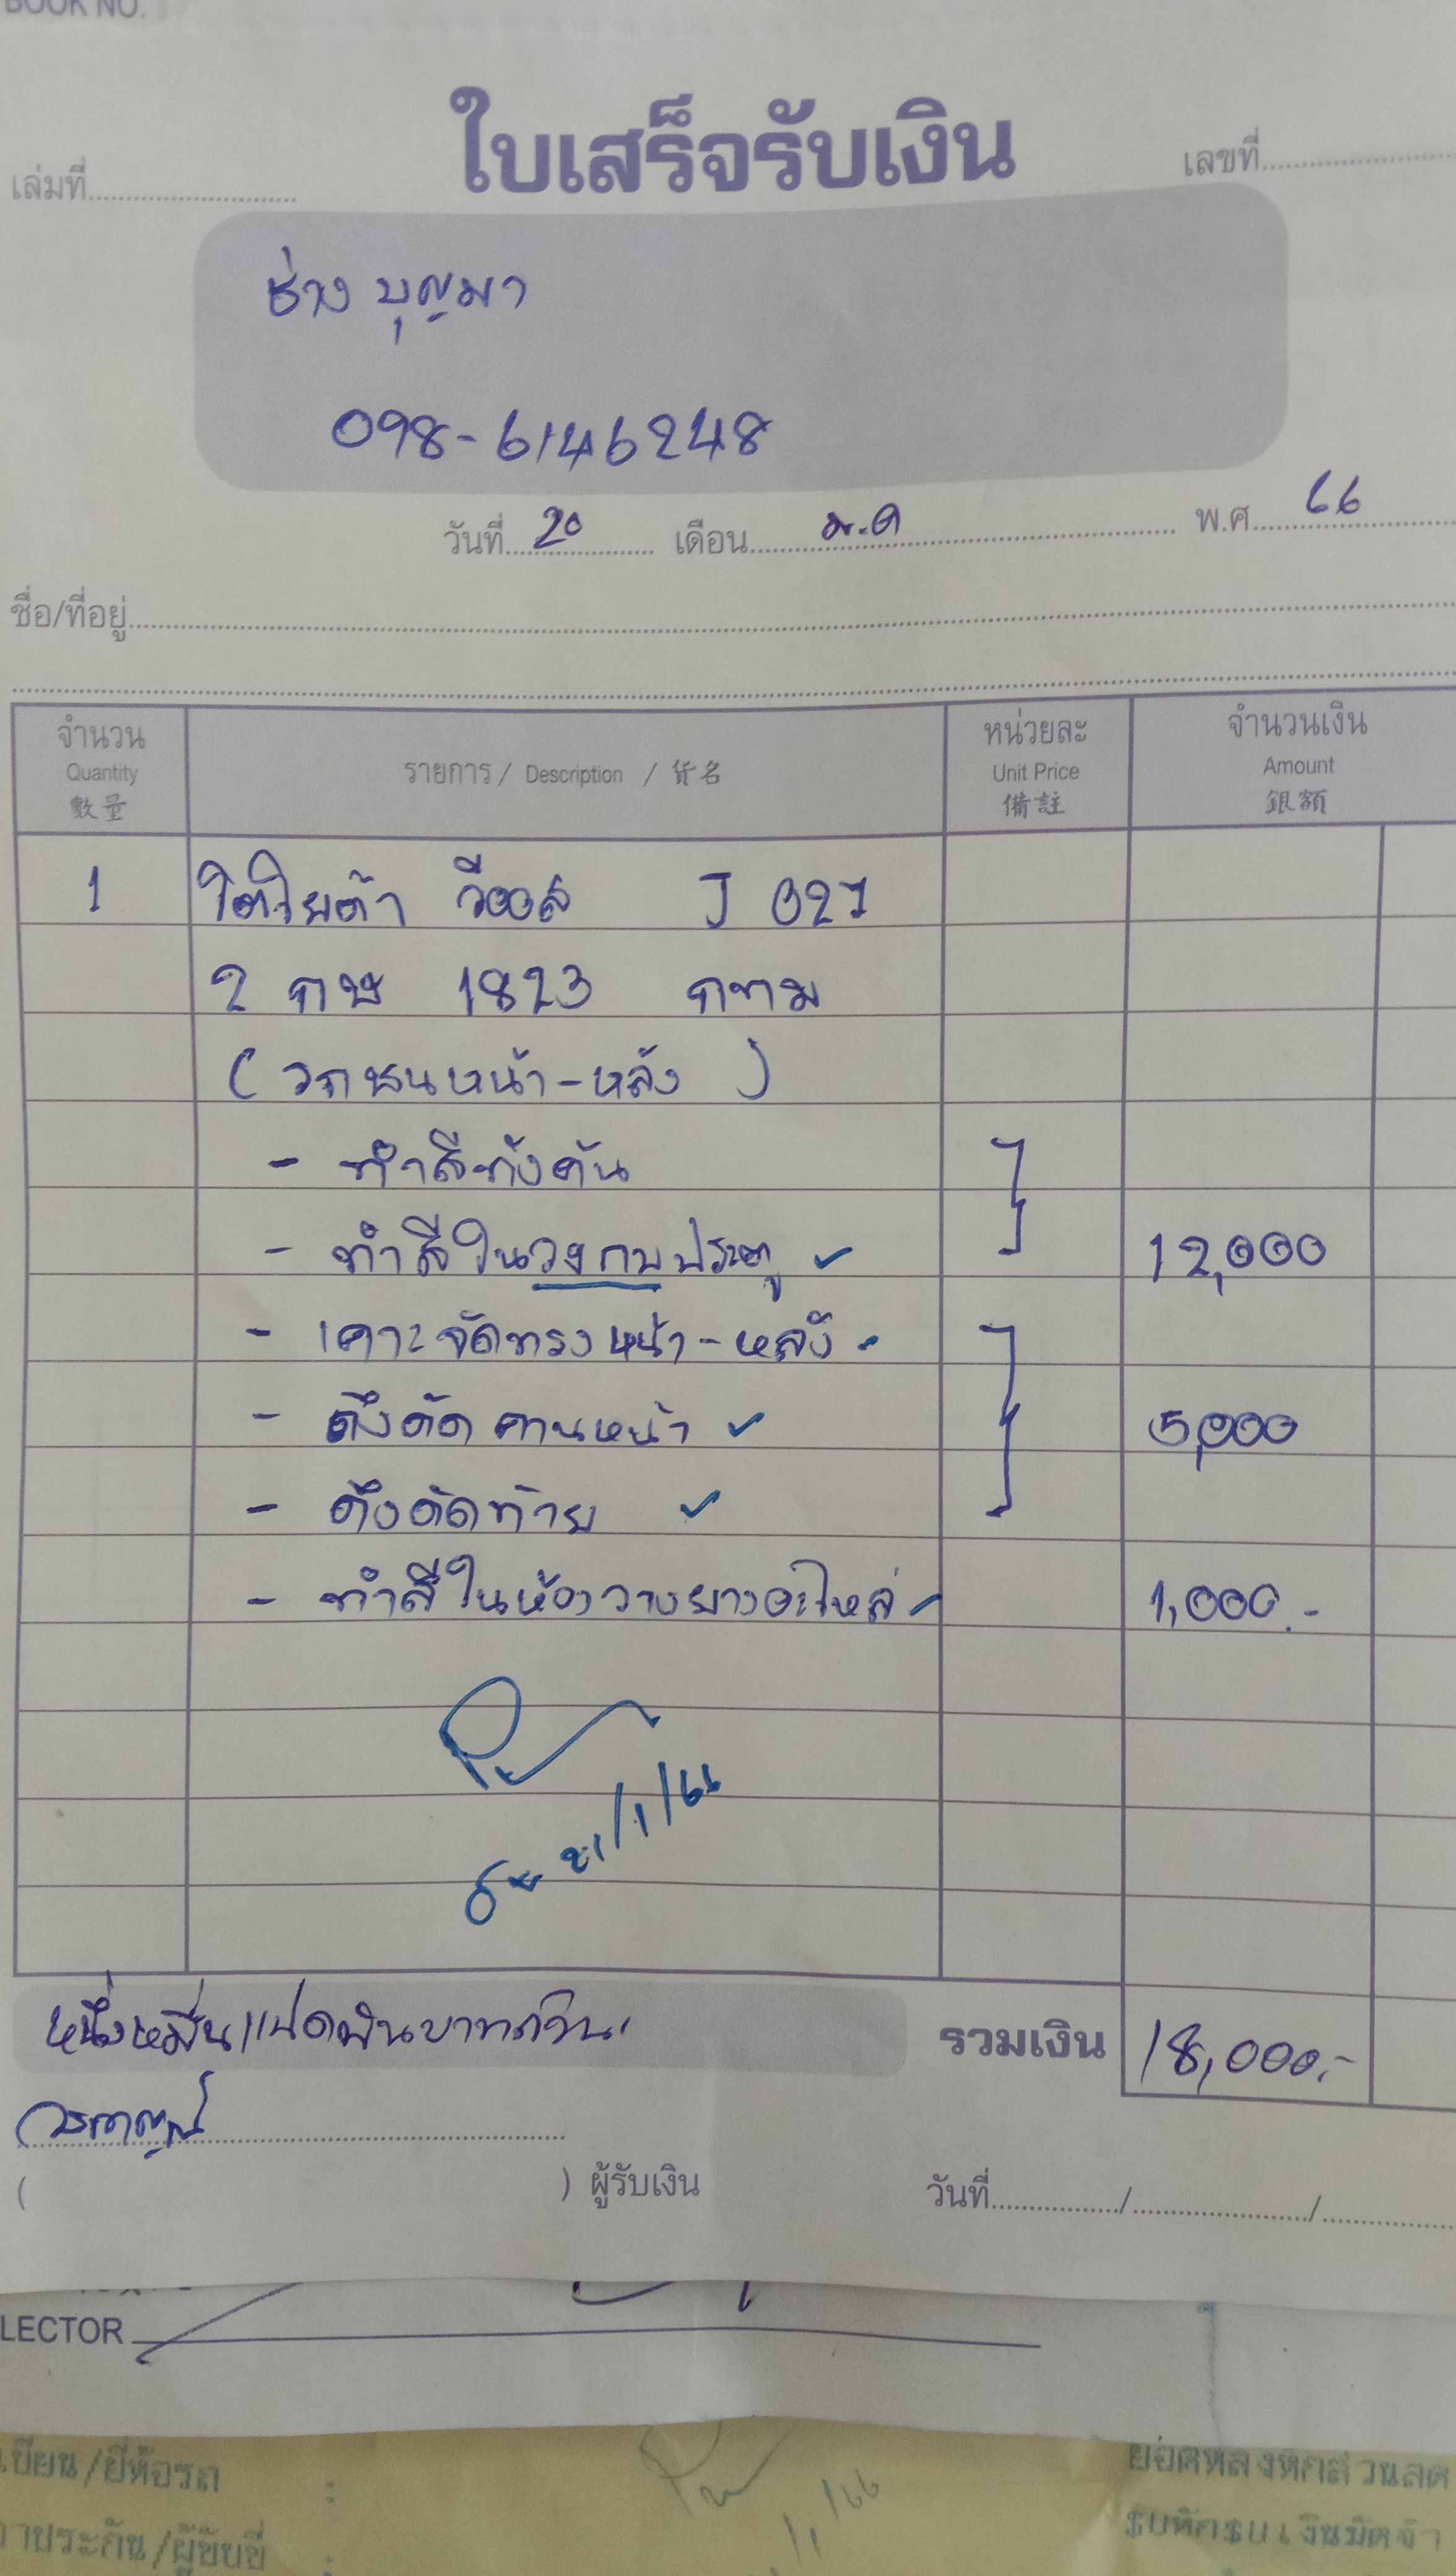 BOOK NO.
ใบเสร็จรับเงิน
เล่มที่
เลขที่
ช่าง บุญมา
098-6146248
วันที่ 20 เดือน ม.ค พ.ศ. 66
ชื่อ/ที่อยู่
จำนวน รายการ / Description / 貨名 หน่วยละ จำนวนเงิน
Quantity Unit Price Amount
數量 備註 銀額
1 โตโยต้า วีออส J 027
2 กษ 1823 กทม
(รถชนหน้า-หลัง)
- ทำสีทั้งคัน
- ทำสีในวงกบประตู ✓ 12,000
- เคาะจัดทรงหน้า-หลัง
- ดึงดัดคานหน้า ✓ 5,000
- ดึงดัดท้าย ✓
- ทำสีในห้องวางยางอะไหล่ ✓ 1,000.-
21/1/66
หนึ่งหมื่นแปดพันบาทถ้วน รวมเงิน 18,000.-
( ) ผู้รับเงิน วันที่ / /
LECTOR
เบียน/ยี่ห้อรถ : ยอดหลังหักส่วนลด
าประกัน/ผู้ขับขี่ :